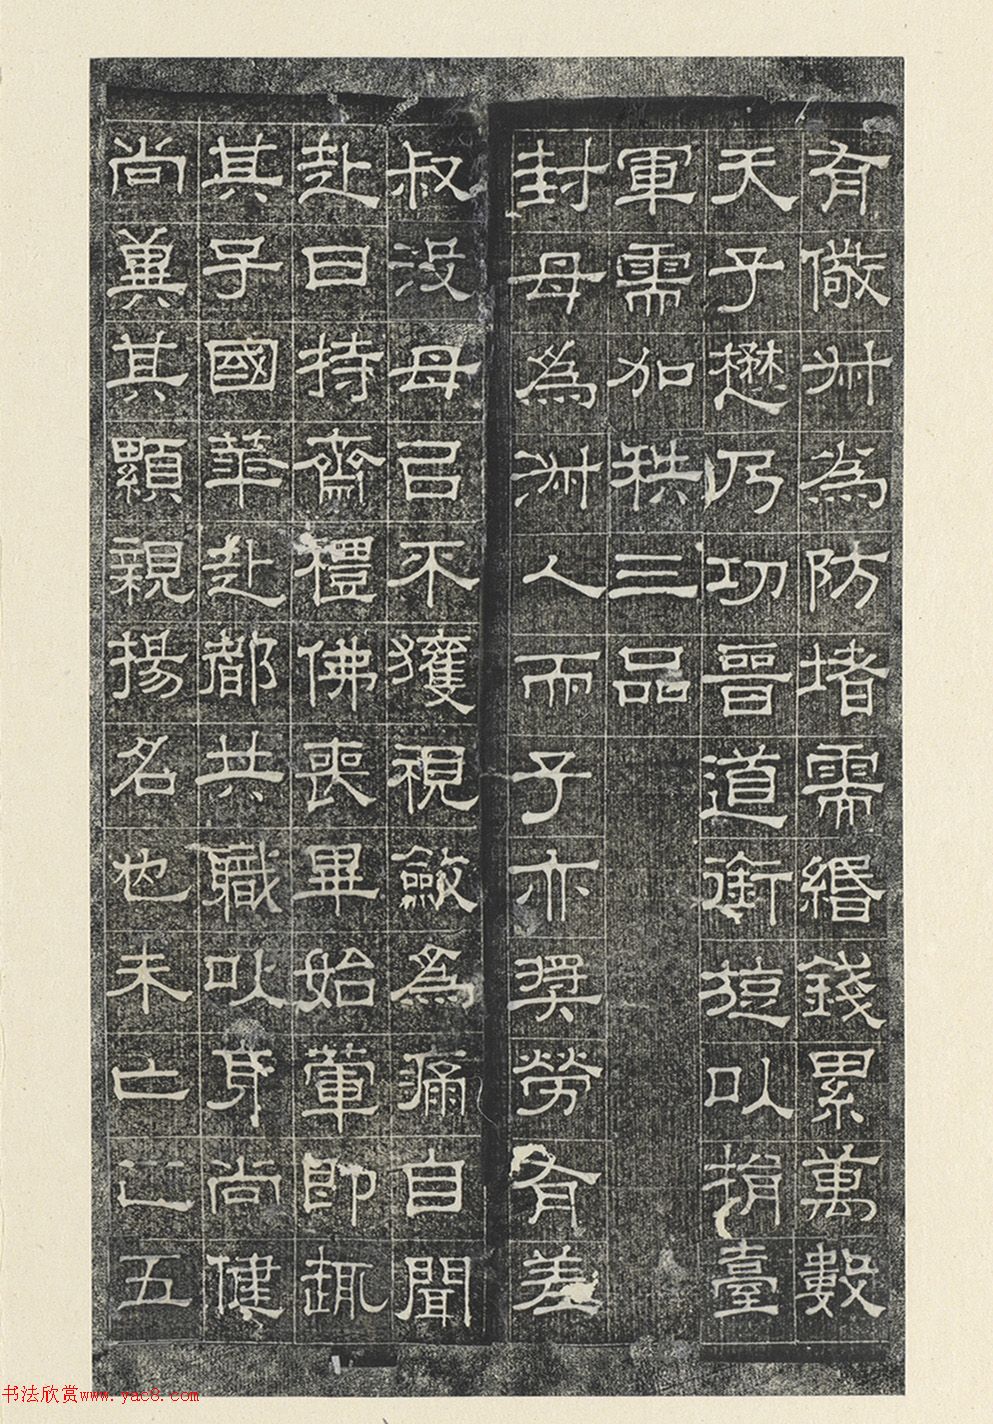 有儆州為防堵需緡錢累萬數
天子懋乃功晉道銜旋以捐臺
軍需加秩三品
封母為淑人而子亦奬勞有差
叔没母以不獲視斂為痛自聞
赴日持齋禮佛喪畢始葷即趣
其子國華赴都共職以身尚健
尚冀其顯親揚名也未亡亡五
书法欣赏www.yac8.com